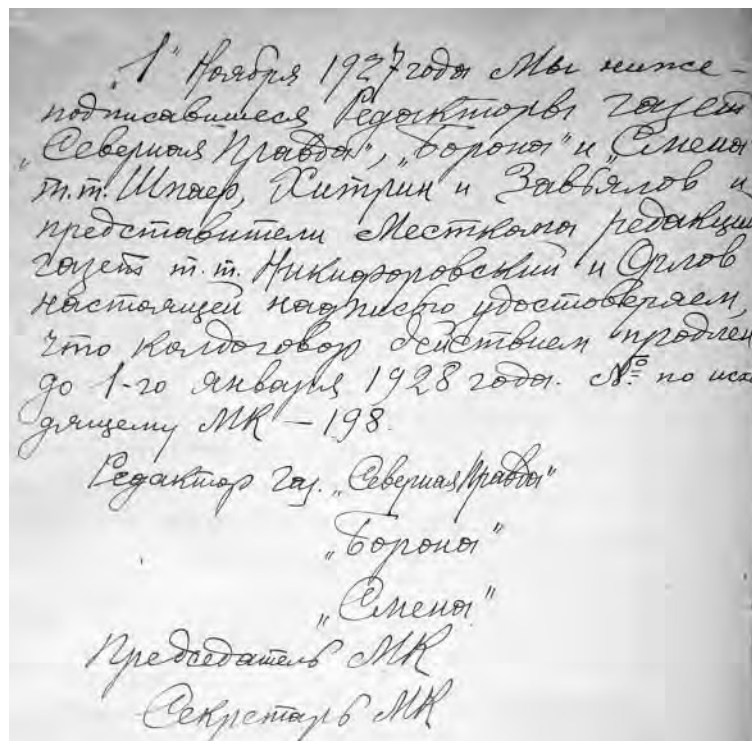 „1" Ноября 1927 года Мы ниже-
подписавшиеся Редакторы газет
„Северная Правда", „Борона" и „Смена
т.т. Шпаер, Хитрин и Завьялов и
представители Месткома редакций
газет т.т. Никифоровский и Орлов
настоящей надписью удостоверяем,
что колдоговор действием продлен
до 1-го января 1928 года. № по исхо
дящему МК – 198.
Редактор газ. „Северная Правда"
„Борона"
„Смена"
Председатель МК
Секретарь МК